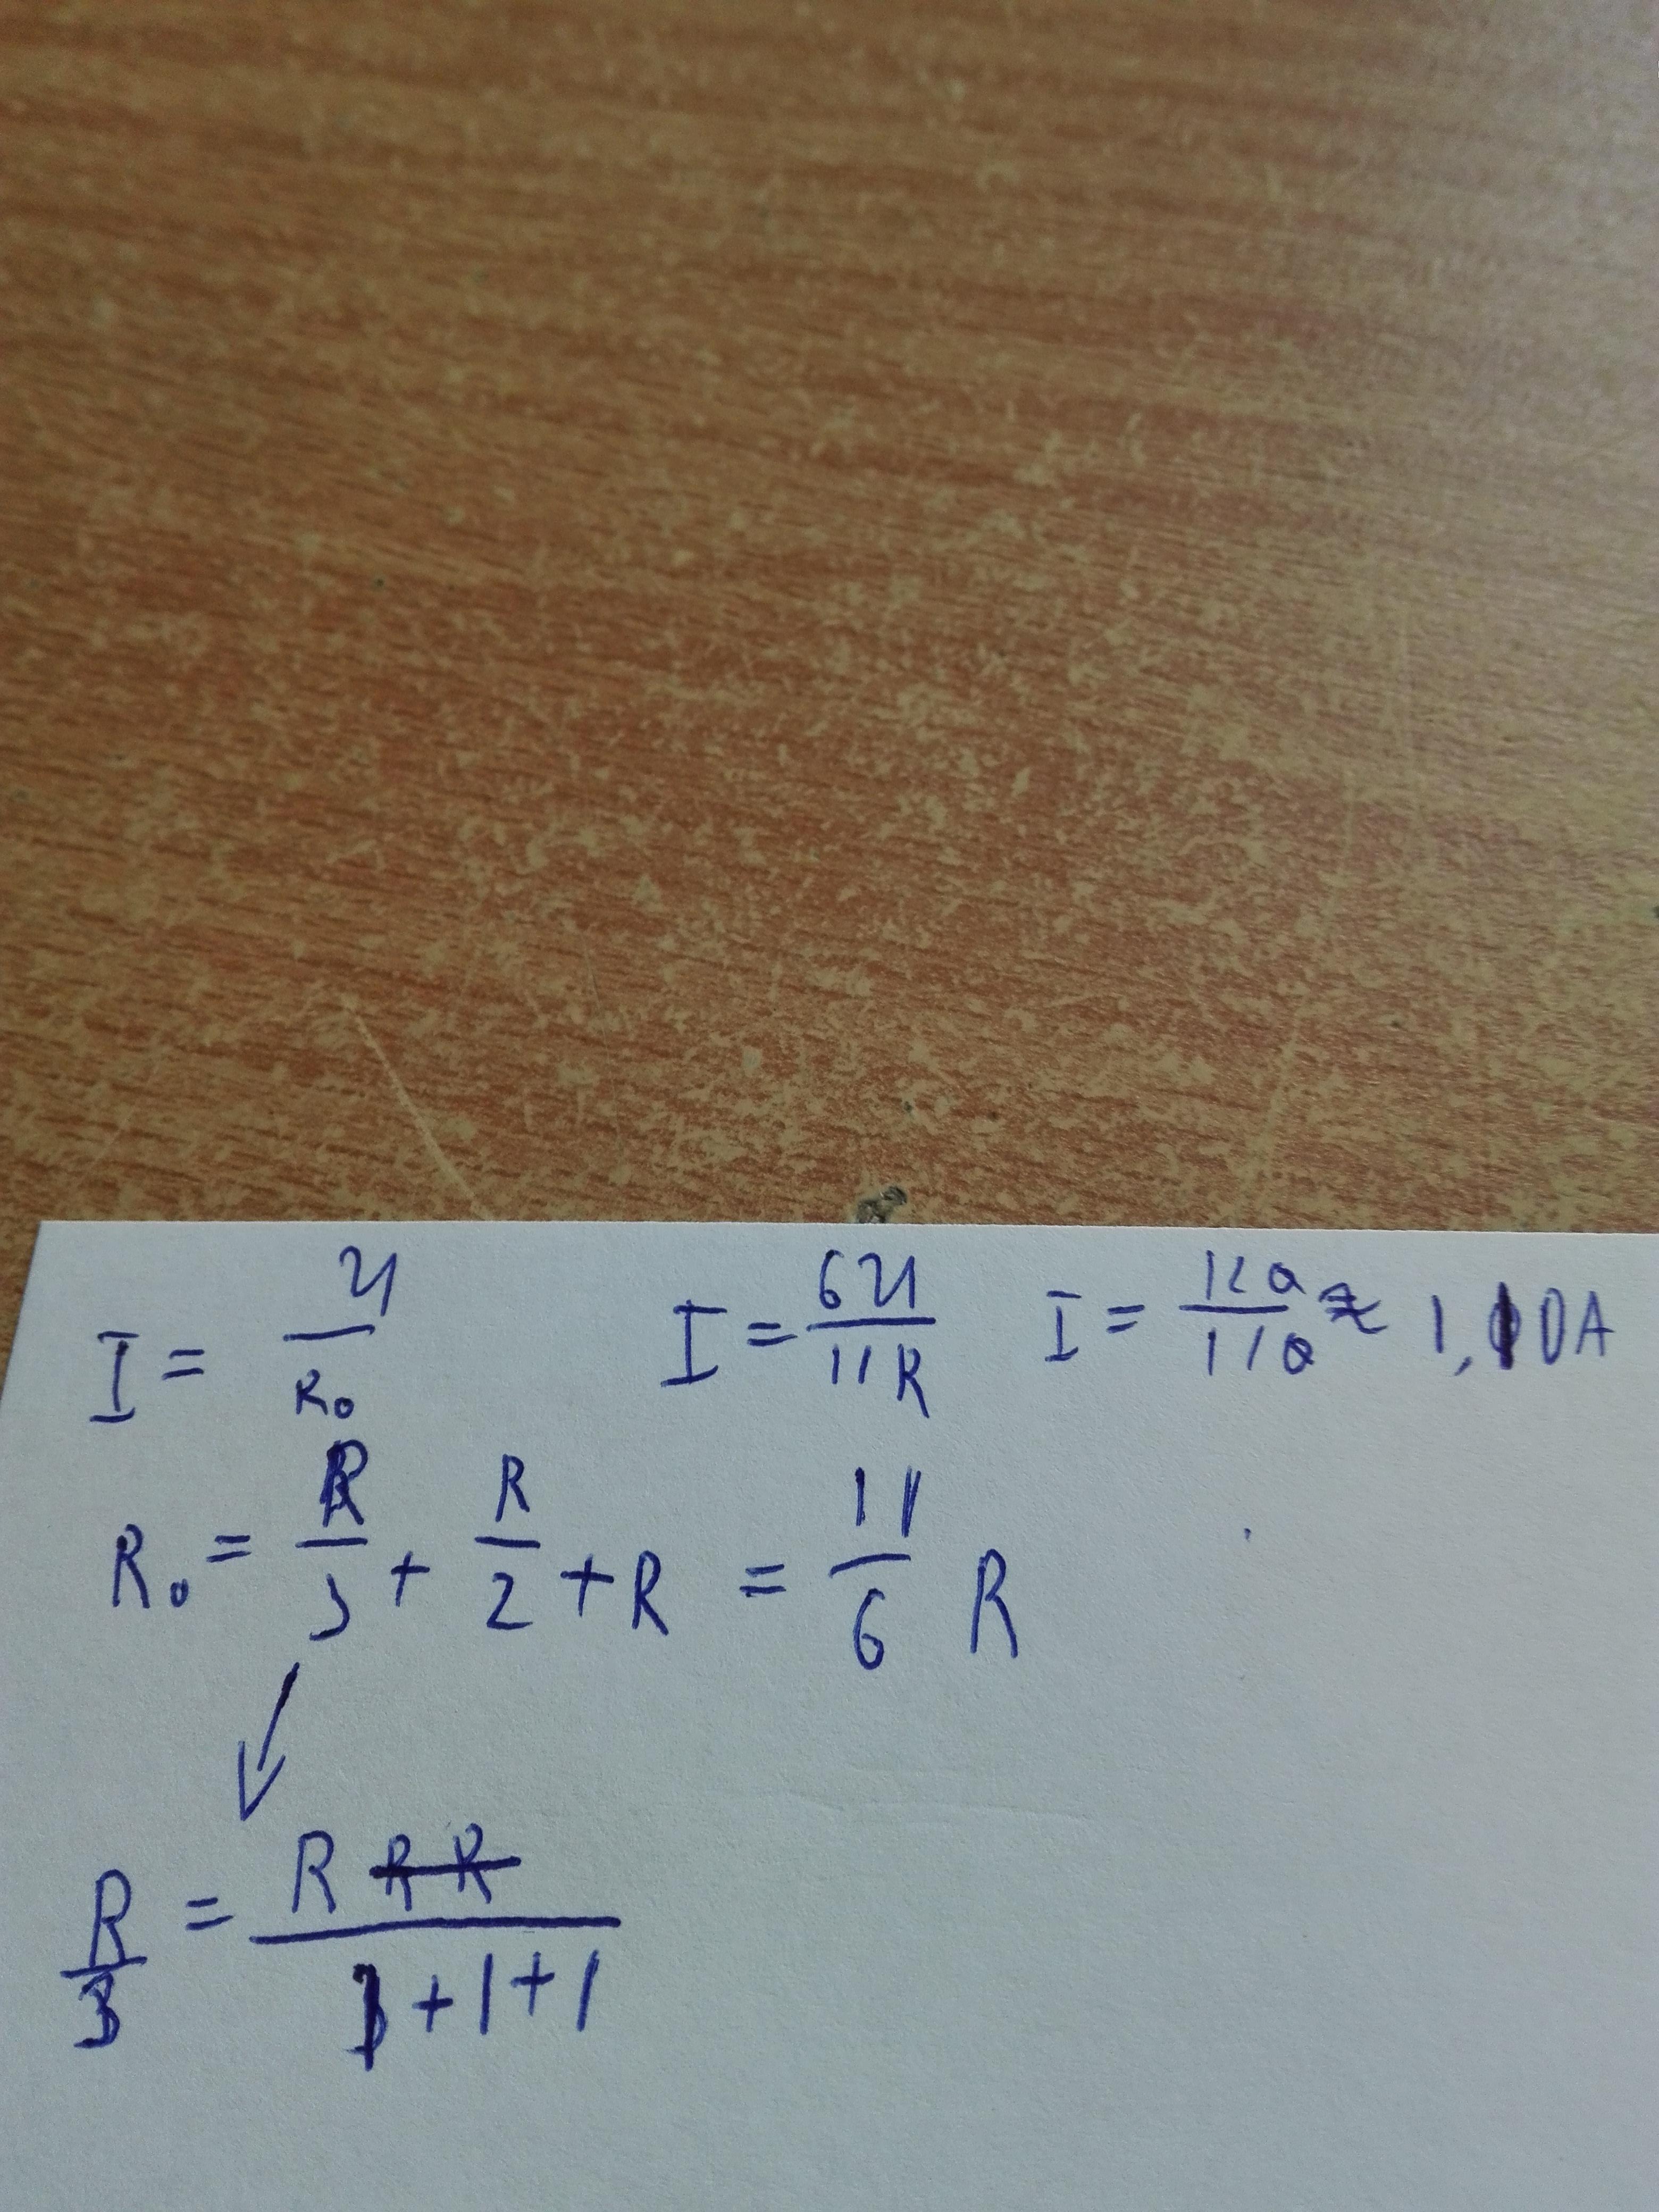 I = U/R₀ I = 6U/11R I = 120/110 ≈ 1,10A
R₀ = R/3 + R/2 + R = 11/6 R
R/3 = R R R/1+1+1